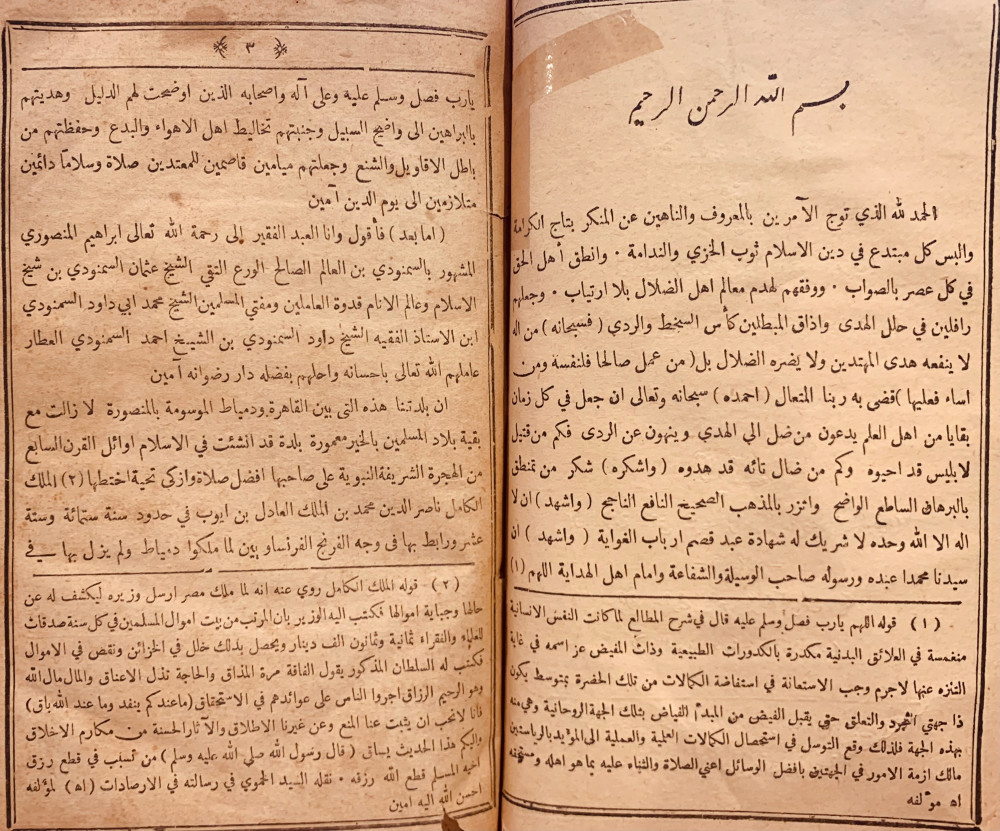 بسم الله الرحمن الرحيم
الحمد لله الذي توج الآمرين بالمعروف والناهين عن المنكر بتاج الكرامة
والبس كل مبتدع في دين الاسلام ثوب الخزي والندامة . وانطق أهل الحق
في كل عصر بالصواب . ووفقهم لهدم معالم اهل الضلال بلا ارتياب . وجعلهم
رافلين في حلل الهدى واذاق المبطلين كأس السخط والردي ( فسبحانه ) من اله
لا ينفعه هدى المهتدين ولا يضره الضلال بل ( من عمل صالحا فلنفسة ومن
اساء فعليها ) قضى به ربنا المتعال ( احمده ) سبحانه وتعالى ان جعل في كل زمان
بقايا من اهل العلم يدعون من ضل الي الهدي وينهون عن الردى فكم من قتيل
لابليس قد احيوه وكم من ضال تائه قد هدوه ( واشكره ) شكر من تمنطق
بالبرهان الساطع الواضح واتزر بالمذهب الصحيح النافع الناجح ( واشهد ) ان لا
اله الا الله وحده لا شريك له شهادة عبد قصم ارباب الغواية ( واشهد ) ان
سيدنا محمدا عبده ورسوله صاحب الوسيلة والشفاعة وامام اهل الهداية اللهم (١)
(١) قوله اللهم يارب فصل وسلم عليه قال في شرح المطالع لما كانت النفس الانسانية
منغمسة في العلائق البدنية مكدرة بالكدورات الطبيعية وذات المفيض عز اسمه في غاية
التنزه عنها لاجرم وجب الاستعانة في استفاضة الكمالات من تلك الحضرة بمتوسط يكون
ذا جهتي التجرد والتعلق حتى يقبل الفيض من المبدأ الفياض بتلك الجهة الروحانية وهي منه
بهذه الجهة فلذلك وقع التوسل في استحصال الكمالات العلمية والعملية الى المؤيد بالرياستين
مالك ازمة الامور في الجهتين بافضل الوسائل اعني الصلاة والثناء عليه بما هو اهله ومستحقه
اه مؤلفه
٣
يارب فصل وسلم عليه وعلى آله واصحابه الذين اوضحت لهم الدليل وهديتهم
بالبراهين الى واضح السبيل وجنبتهم تخاليط اهل الاهواء والبدع وحفظتهم من
باطل الاقاويل والشنع وجعلتهم ميامين قاصمين للمعتدين صلاة وسلاماً دائمين
متلازمين الى يوم الدين آمين
( اما بعد ) فأقول وانا العبد الفقير الى رحمة الله تعالى ابراهيم المنصوري
المشهور بالسمنودي بن العالم الصالح الورع التقي الشيخ عثمان السمنودي بن شيخ
الاسلام وعالم الانام قدوة العاملين ومفتي المسلمين الشيخ محمد ابي داود السمنودي
ابن الاستاذ الفقيه الشيخ داود السمنودي بن الشيخ احمد السمنودي العطار
عاملهم الله تعالى باحسانه واحلهم بفضله دار رضوانه آمين
ان بلدتنا هذه التى بين القاهرة ودمياط الموسومة بالمنصورة لا زالت مع
بقية بلاد المسلمين بالخير معمورة بلدة قد انشئت في الاسلام اوائل القرن السابع
من الهجرة الشريفة النبوية على صاحبها افضل صلاة وازكى تحية اختطها (٢) الملك
الكامل ناصر الدين محمد بن الملك العادل بن ايوب في حدود سنة ستمائة وستة
عشر ورابط بها في وجه الفرنج الفرنساويين لما ملكوا دمياط ولم يزل بها في
(٢) قوله الملك الكامل روي عنه انه لما ملك مصر ارسل وزيره ليكشف له عن
حالها وجباية اموالها فكتب اليه الوزير بان المرتب من بيت اموال المسلمين في كل سنة صدقات
للعلماء والفقراء ثمانية وثمانون الف دينار ويحصل بذلك خلل في الخزائن ونقص في الاموال
فكتب له السلطان المذكور يقول الفاقة مرة المذاق والحاجة تذل الاعناق والمال مال الله
وهو الرحيم الرزاق اجروا الناس على عوائدهم في الاستحقاق (ما عندكم ينفد وما عند الله باق)
فانا لانحب ان يثبت عنا المنع وعن غيرنا الاطلاق والآثار الحسنة من مكارم الاخلاق
واليكم هذا الحديث يساق ( قال رسول الله صلي الله عليه وسلم ) من تسبب في قطع رزق
اخيه المسلم قطع الله رزقه . نقله السيد الحموي في رسالته في الارصادات ( اه ) لمؤلفه
احسن الله اليه امين